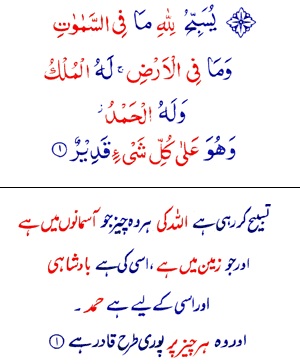 يُسَبِّحُ لِلّٰهِ مَا فِى السَّمٰوٰتِ
وَمَا فِى الْاَرْضِ ۚ لَهُ الْمُلْكُ
وَلَهُ الْحَمْدُ ۫
وَهُوَ عَلٰى كُلِّ شَىْءٍ قَدِيْرٌ ۝۱
تسبیح کر رہی ہے اللہ کی ہر وہ چیز جو آسمانوں میں ہے
اور جو زمین میں ہے ،اسی کی ہے بادشاہی
اور اسی کے لیے ہے حمد ۔
اور وہ ہر چیز پر پوری طرح قادر ہے ۝۱